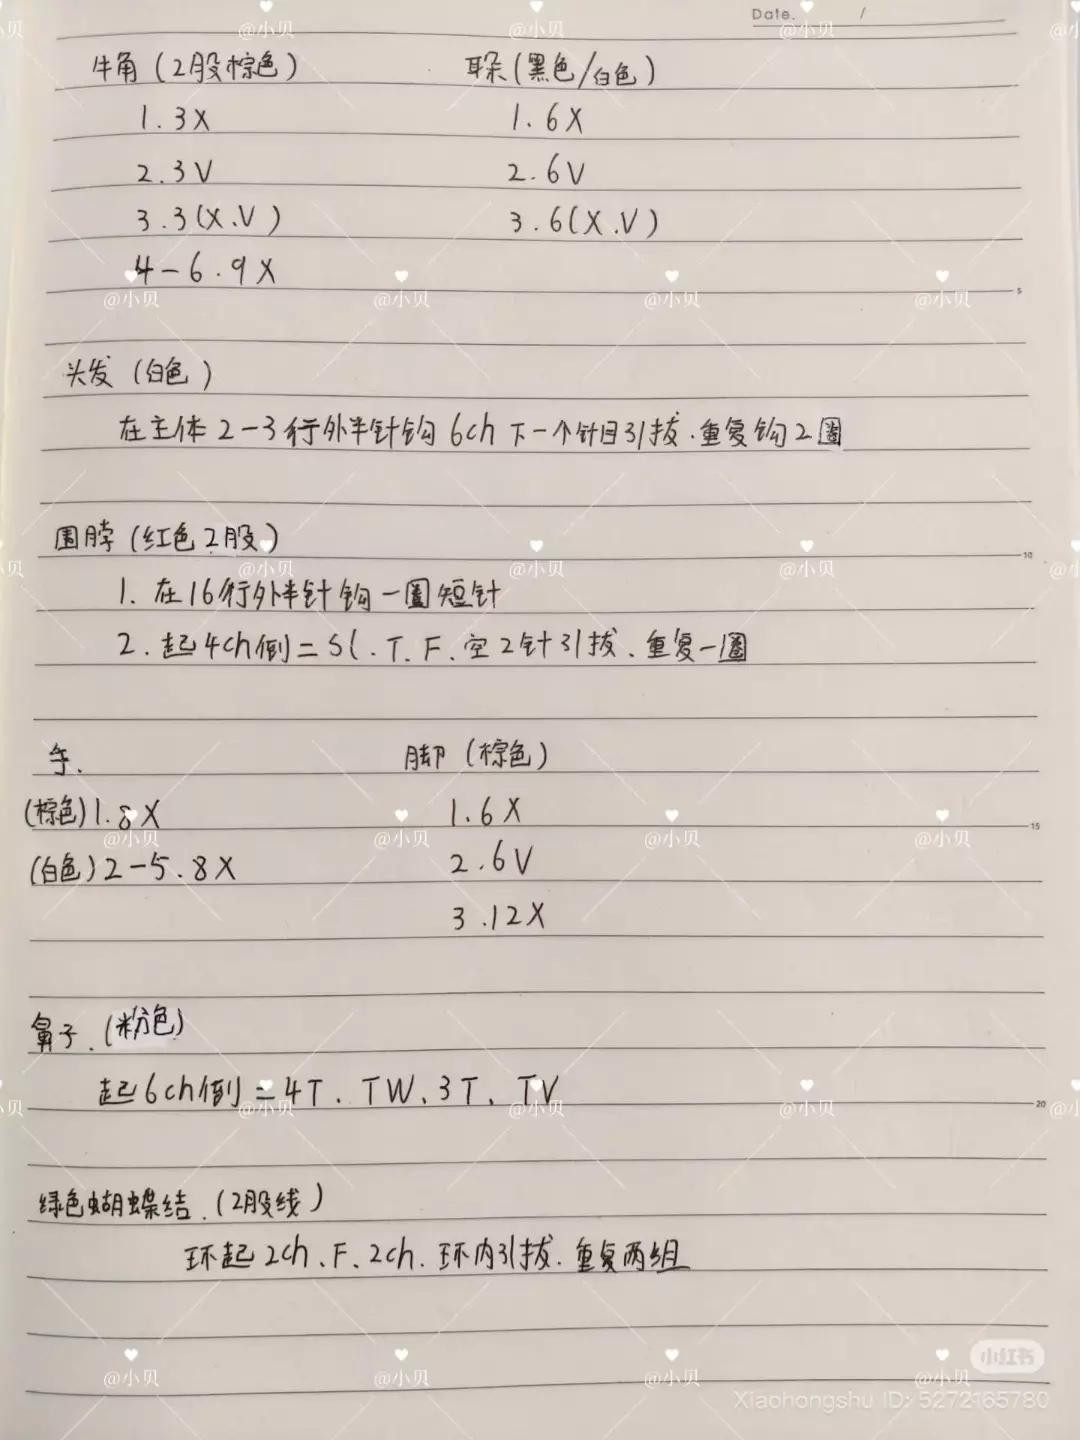 Date. /
牛角（2股棕色）
1.3X
2.3V
3.3(X.V)
4-6.9X
耳朵(黑色/白色)
1.6X
2.6V
3.6(X.V)
5
头发（白色）
在主体2-3行外半针钩6ch下一个针目引拔.重复钩2圈
围脖（红色2股）
10
1. 在16行外半针钩一圈短针
2. 起4ch倒=Sl.T.F.空2针引拔.重复一圈
手.
(棕色)1.8X
(白色)2-5.8X
脚（棕色）
1.6X
15
2.6V
3.12X
鼻子.(粉色)
起6ch倒=4T.TW、3T、TV
20
绿色蝴蝶结.（2股线）
环起2ch.F.2ch.环内引拔.重复两组
@小贝
小红书
Xiaohongshu ID: 5272165780